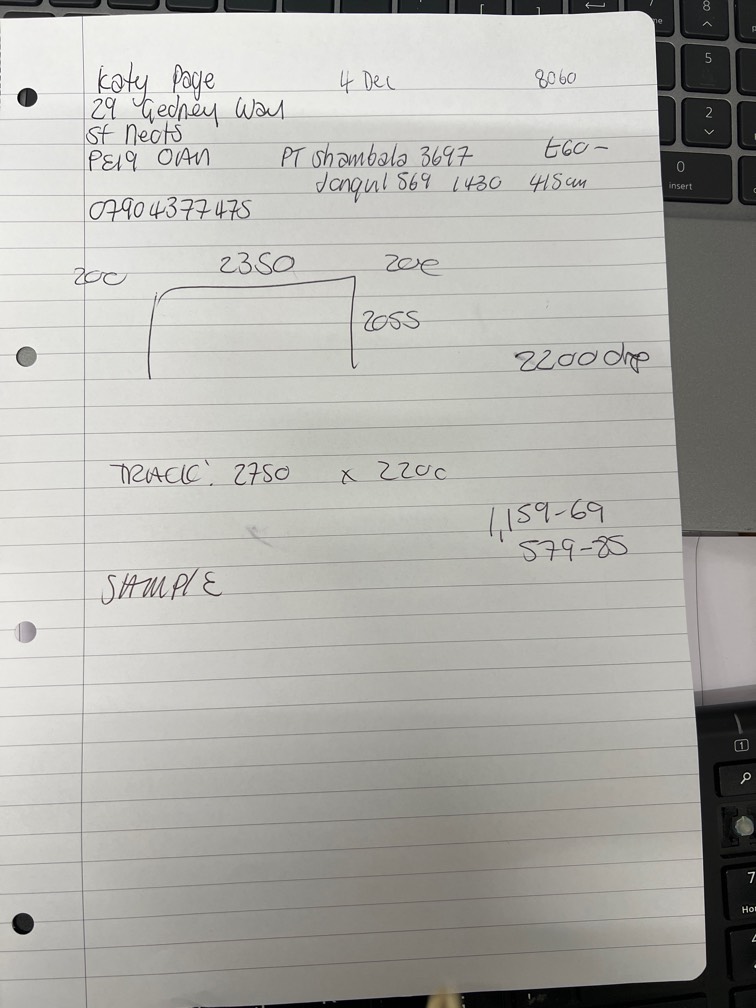 Katy Page 4 Dec 8060
29 Gedney Way
St Neots
PE19 0AN PT Shambala 3697 £60-
Jonquil 569 1430 415cm
07904377475
200 2350 200
2055
2200 drp
TRACK: 2750 x 2200
1,159-69
579-85
SAMPLE